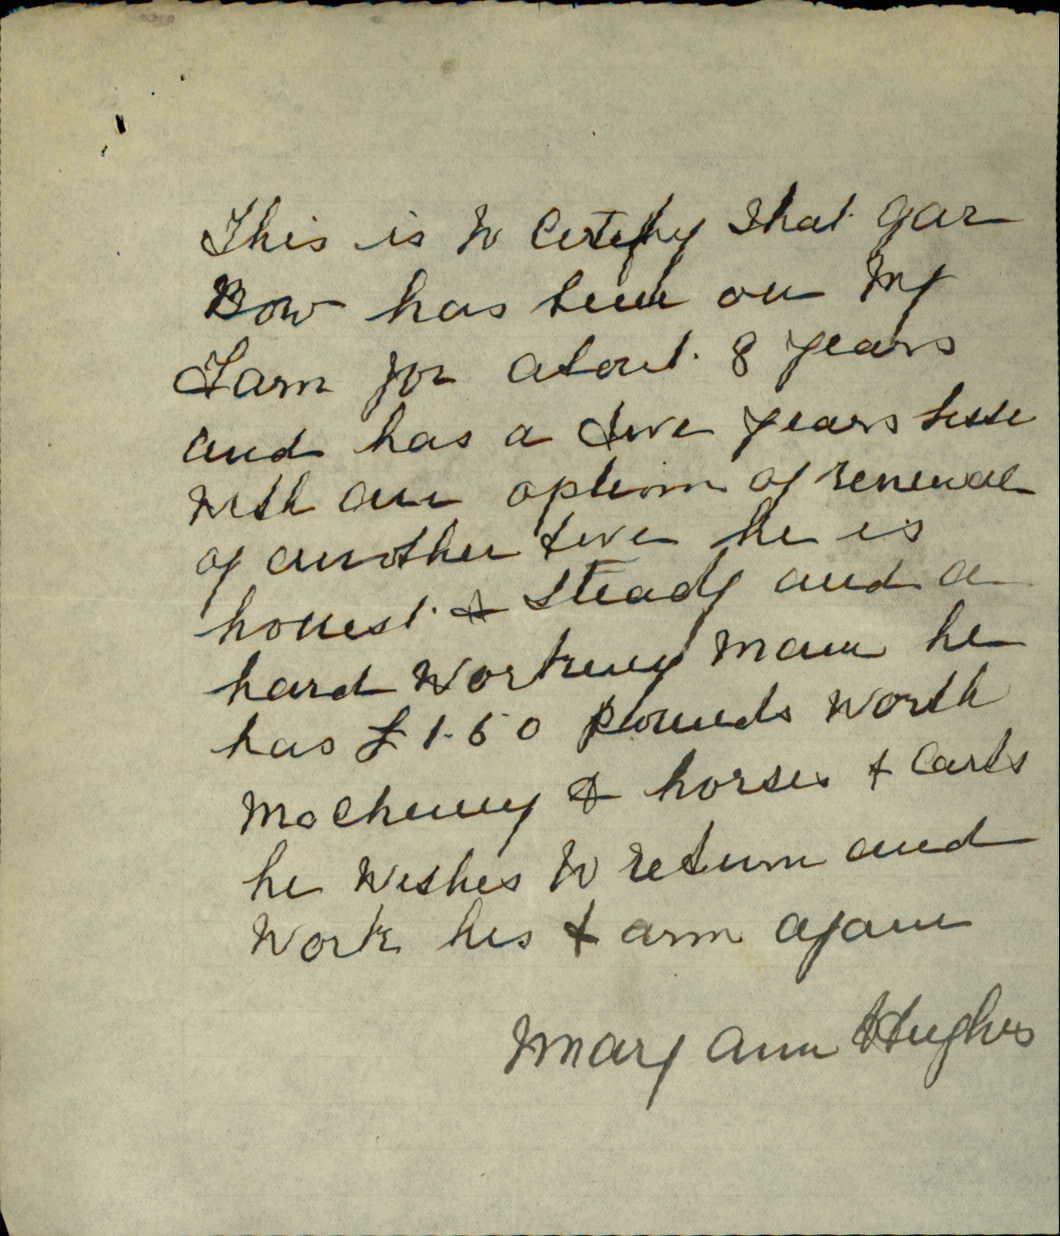 This is to Certify that gar
Bow has been on My
Farm for about 8 years
and has a five years lesse
With an option of renewal
of another five he is
honest & Steady and a
hard Working Man he
has £150 pounds Worth
Mochinny & horses & Carts
he Wishes to return and
Work his farm again
Mary Ann Hughes